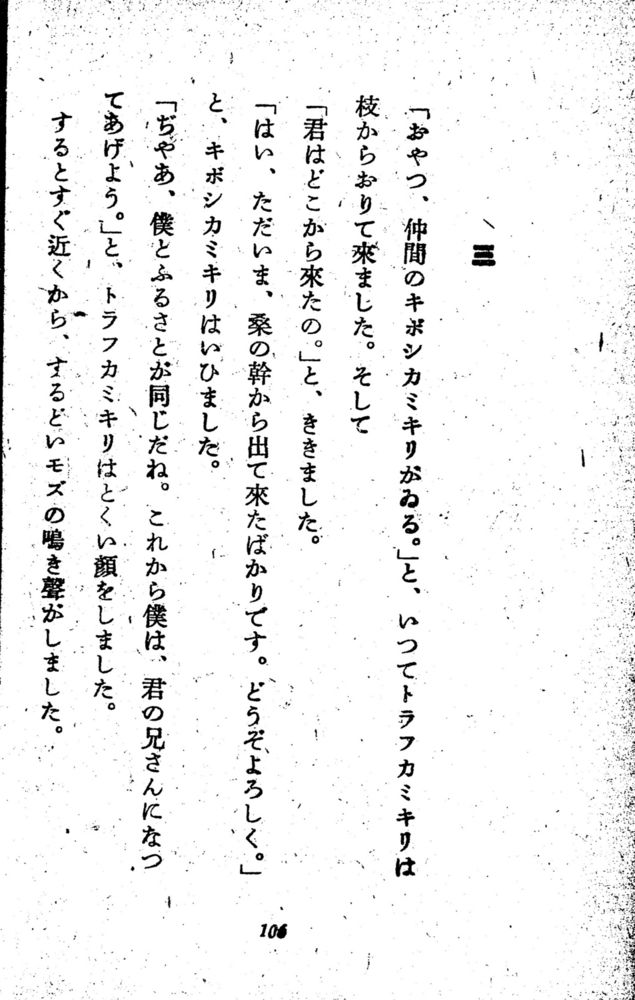 三
「おやつ、仲間のキボシカミキリがゐる。」と、いつてトラフカミキリは
枝からおりて来ました。そして
「君はどこから来たの。」と、ききました。
「はい、ただいま、桑の幹から出て来たばかりです。どうぞよろしく。」
と、キボシカミキリはいひました。
「ぢやあ、僕とふるさとが同じだね。これから僕は、君の兄さんになつ
てあげよう。」と、トラフカミキリはとくい顔をしました。
するとすぐ近くから、するどいモズの鳴き聲がしました。
106